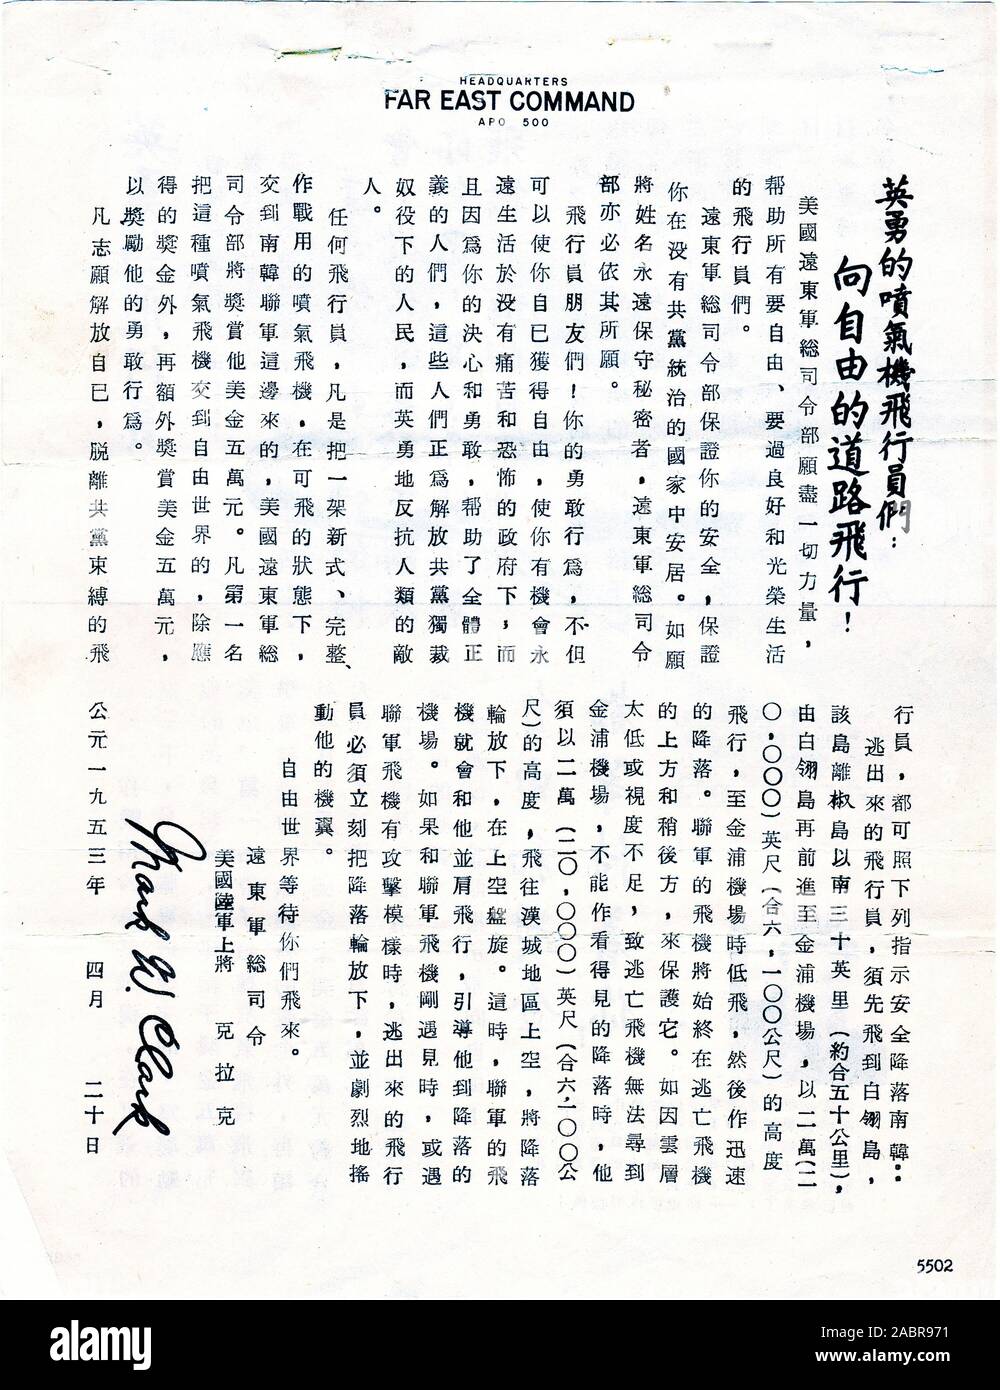 HEADQUARTERS
FAR EAST COMMAND
APO 500
英勇的噴氣機飛行員們：
向自由的道路飛行！
美國遠東軍総司令部願盡一切力量，
帮助所有要自由、要過良好和光榮生活
的飛行員們。
遠東軍総司令部保證你的安全，保證
你在没有共黨統治的國家中安居。如願
將姓名永遠保守秘密者，遠東軍総司令
部亦必依其所願。
飛行員朋友們！你的勇敢行爲，不但
可以使你自已獲得自由，使你有機會永
遠生活於没有痛苦和恐怖的政府下，而
且因爲你的決心和勇敢，帮助了全體正
義的人們，這些人們正爲解放共黨獨裁
奴役下的人民，而英勇地反抗人類的敵
人。
任何飛行員，凡是把一架新式、完整、
作戰用的噴氣飛機，在可飛的狀態下，
交到南韓聯軍這邊來的，美國遠東軍総
司令部將獎賞他美金五萬元。凡第一名
把這種噴氣飛機交到自由世界的，除應
得的獎金外，再額外獎賞美金五萬元，
以獎勵他的勇敢行爲。
凡志願解放自已，脱離共黨束縛的飛
行員，都可照下列指示安全降落南韓：
逃出來的飛行員，須先飛到白翎島，
該島離椒島以南三十英里（約合五十公里），
由白翎島再前進至金浦機場，以二萬（二
〇，〇〇〇）英尺（合六，一〇〇公尺）的高度
飛行，至金浦機場時低飛，然後作迅速
的降落。聯軍的飛機將始終在逃亡飛機
的上方和稍後方，來保護它。如因雲層
太低或視度不足，致逃亡飛機無法尋到
金浦機場，不能作看得見的降落時，他
須以二萬（二〇，〇〇〇）英尺（合六，一〇〇公
尺）的高度，飛往漢城地區上空，將降落
輪放下，在上空盤旋。這時，聯軍的飛
機就會和他並肩飛行，引導他到降落的
機場。如果和聯軍飛機剛遇見時，或遇
聯軍飛機有攻擊模樣時，逃出來的飛行
員必須立刻把降落輪放下，並劇烈地搖
動他的機翼。
自由世界等待你們飛來。
遠東軍総司令
美國陸軍上將 克拉克
Mark W. Clark
公元一九五三年 四月 二十日
5502
alamy
Image ID: 2ABR971
www.alamy.com